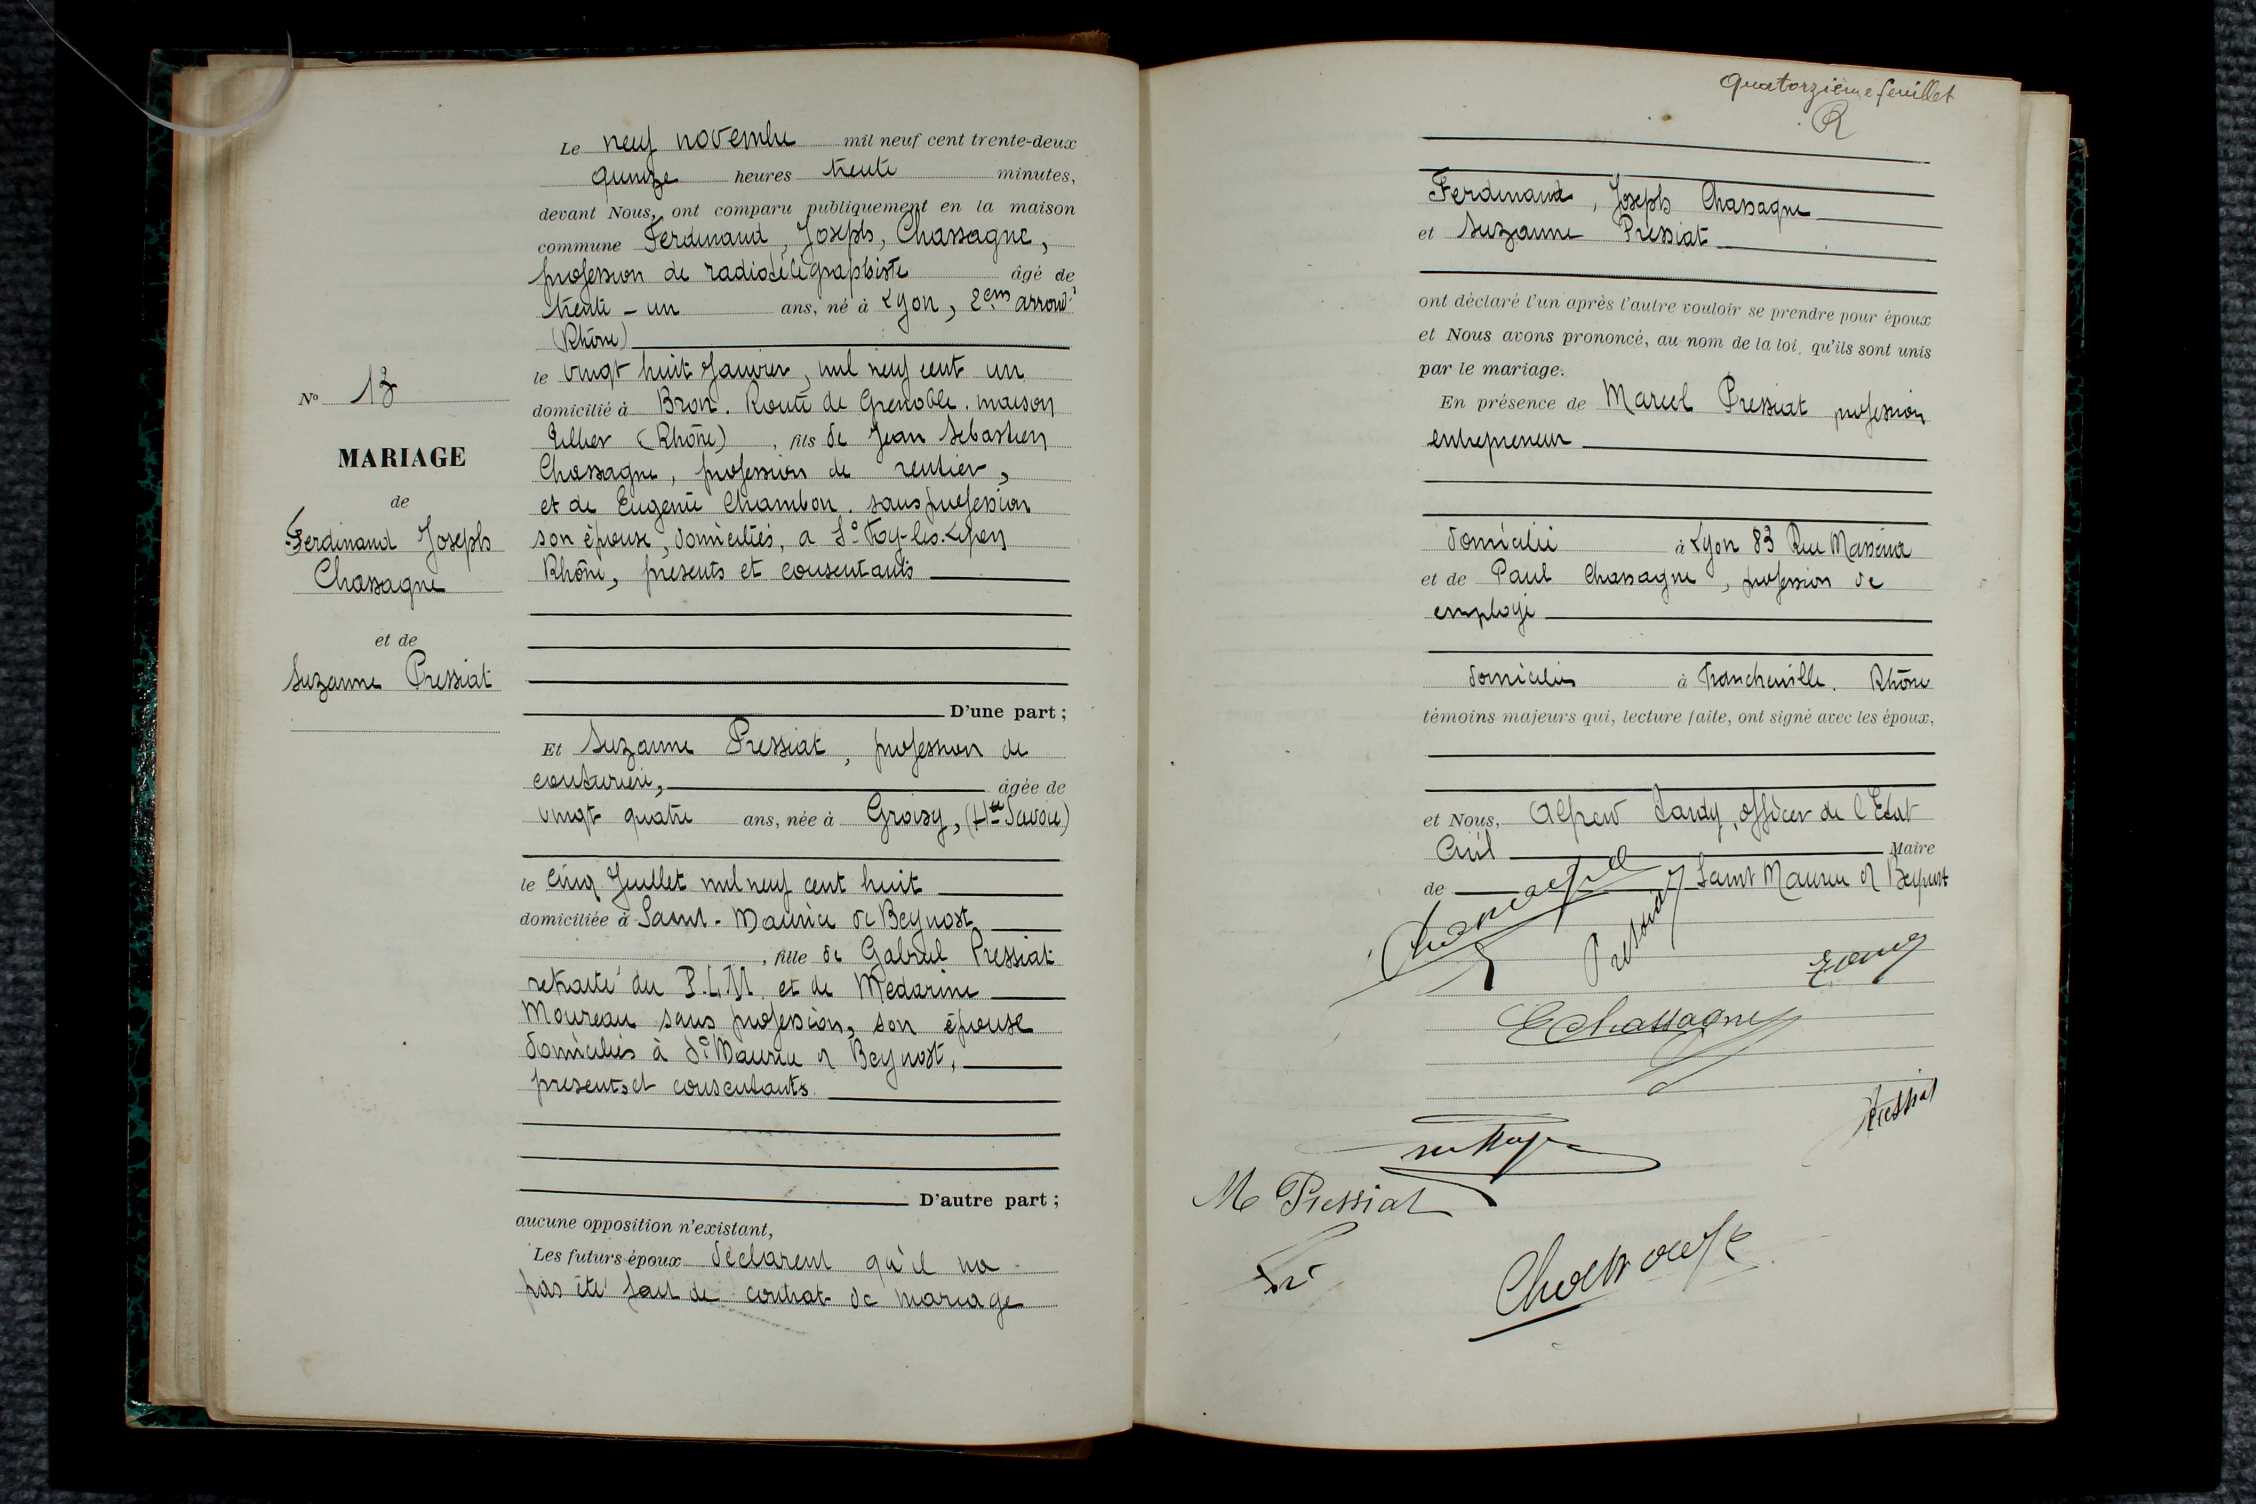 Le neuf novembre mil neuf cent trente-deux
quinze heures trente minutes,
devant Nous, ont comparu publiquement en la maison
commune Ferdinand, Joseph, Chassagne,
profession de radiotélégraphiste âgé de
trente-un ans, né à Lyon, 2em arrondt
(Rhône)
le vingt huit Janvier, mil neuf cent un
domicilié à Bron. Route de Grenoble. maison
(Rhône), fils de Jean Sebastien
Chassagne, profession de rentier,
et de Eugenie Chambon. sans profession
son épouse, domiciliés, a Ste Foy-les-Lyon
Rhône, presents et consentants
D'une part ;
Nº 13
MARIAGE
de
Ferdinand Joseph
Chassagne
et de
Suzanne Pressiat
Et Suzanne Pressiat, profession de
couturière, âgée de
vingt quatre ans, née à Groisy, (Hte Savoie)
le cinq Juillet mil neuf cent huit
domiciliée à Saint-Maurice de Beynost
, fille de Gabriel Pressiat
retraité du P.L.M. et de Medarine
Moureau sans profession, son épouse
domiciliés à St Maurice de Beynost,
presents et consentants.
D'autre part ;
aucune opposition n'existant,
Les futurs époux déclarent qu'il na
pas été fait de contrat de mariage
Quatorzième feuillet
R
Ferdinand, Joseph Chassagne
et Suzanne Pressiat
ont déclaré l'un après l'autre vouloir se prendre pour époux
et Nous avons prononcé, au nom de la loi, qu'ils sont unis
par le mariage.
En présence de Marcel Pressiat profession
entrepreneur
domicilié à Lyon 83 Rue Massena
et de Paul Chassagne, profession de
employé
domicilié à Francheville. Rhône
témoins majeurs qui, lecture faite, ont signé avec les époux,
et Nous, Alfred Tardy, officer de l'Etat
Civil Maire
de Saint Maurice de Beynost
E Chassagne
Pressiat
M Pressiat